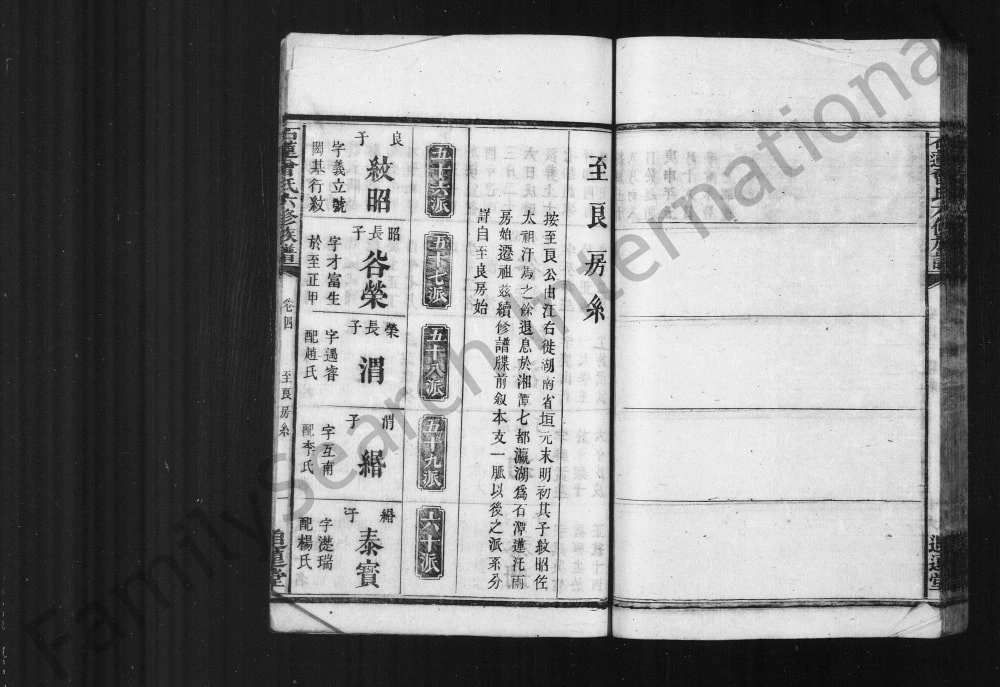 至良房系
按至良公由江右徙湖南省垣元末明初其子紋昭佐
太祖汗馬之餘退息於湘潭七都瀛湖爲石潭蓮汑兩
房始遷祖茲續修譜牒前叙本支一脈以後之派系分
詳自至良房始
五十六派
五十七派
五十八派
五十九派
六十派
良子
紋昭
字義立號
閎基行敎
昭長子
谷榮
字才富生
於至正甲
榮長子
渭
字遇睿
配趙氏
渭子
緡
字互南
配李氏
緡子
泰實
字濋瑞
配楊氏
石蓮曾氏六修族譜
卷四
至良房系
一
追遠堂
石蓮曾氏六修族譜
追遠堂
FamilySearch International